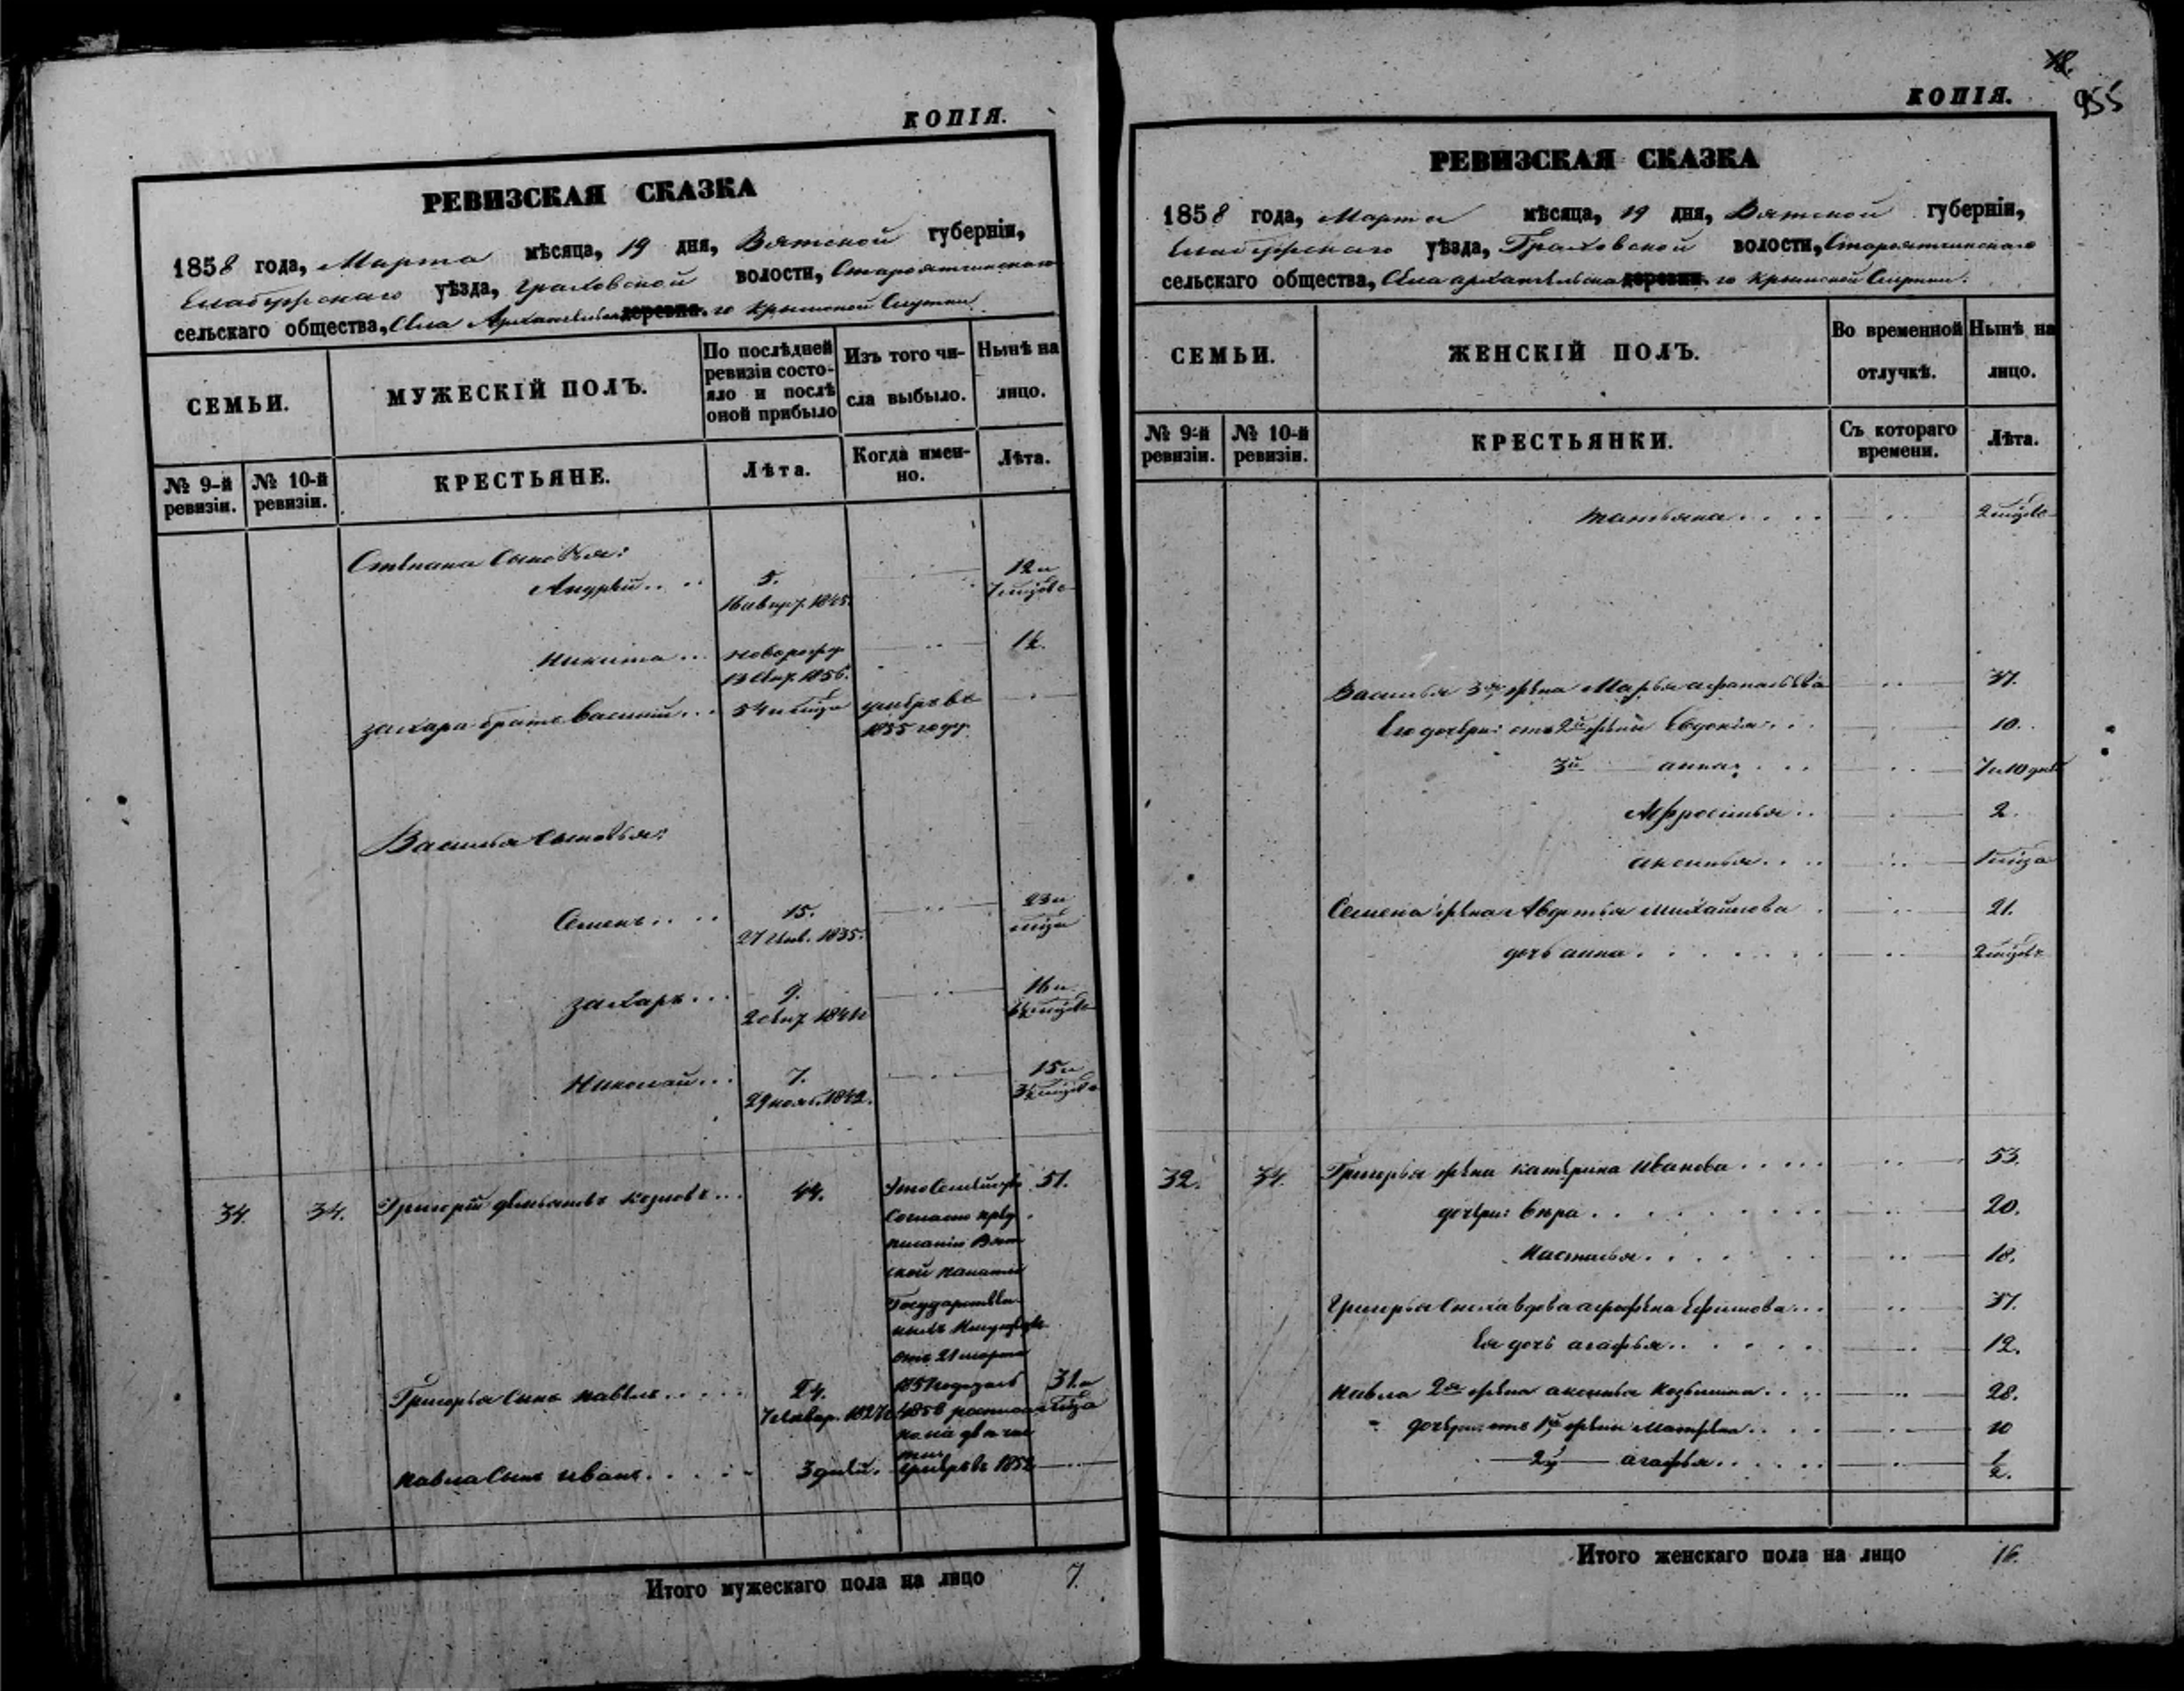 КОПІЯ.
РЕВИЗСКАЯ СКАЗКА
1858 года, Марта мѣсяца, 19 дня, Вятской губерніи,
Елабужскаго уѣзда, Граховской волости, Староятчинскаго
сельскаго общества, Села Архангельска деревни. го Крымской Слудки
СЕМЬИ.
МУЖЕСКІЙ ПОЛЪ.
По послѣдней
ревизіи состо-
яло и послѣ
оной прибыло
Изъ того чи-
сла выбыло.
Нынѣ на
лицо.
№ 9-й
ревизіи.
№ 10-й
ревизіи.
КРЕСТЬЯНЕ.
Лѣта.
Когда имен-
но.
Лѣта.
Степана Сыновья:
Андрей . . . . 5. 12 и
1845. 7 мцовъ
Никита . . новорожд 1½.
13 Окт. 1856.
Захара братъ Василій . . . 54 и мца умеръ въ
1855 году.
Василья Сыновья:
Семенъ . . . . 15. 23 и
27 Янв. 1835. мца
Захаръ . . . 9. 16 и
мцовъ
Николай . . . 7. 15 и
29 нояб. 1842. 3½ мцовъ
34. 34. Григорій Демьяновъ . . . 44. Это Семейство 51.
Согласно пред
писанію Вят
ской палаты
Государствен
ныхъ Имуществъ
отъ 21 марта
Григорья Сынъ Павелъ . . . . . 24. 1857 года за № 31 и
7 Январ. 1827 мца
на две
Павла Сынъ Иванъ . . . . . 3 дней. умеръ въ 1852
Итого мужескаго пола на лицо 7.
955
КОПІЯ.
РЕВИЗСКАЯ СКАЗКА
1858 года, Марта мѣсяца, 19 дня, Вятской губерніи,
Елабужскаго уѣзда, Граховской волости, Староятчинскаго
сельскаго общества, Села Архангельска деревни. го Крымской Слудки.
СЕМЬИ.
ЖЕНСКІЙ ПОЛЪ.
Во временной
отлучкѣ.
Нынѣ на
лицо.
№ 9-й
ревизіи.
№ 10-й
ревизіи.
КРЕСТЬЯНКИ.
Съ котораго
времени.
Лѣта.
Татьяна . . . . 2 мцовъ
Василья 3я жена Марья Афанасьева 37.
Его дочери: отъ 2й жены Евдокія . . . 10.
3й — анна . . . 7 и 10 дней
Афросинья . . 2.
аксинья . . . . мца
Семена жена Авдотья Михайлова . 21.
дочь анна . . . . . . . 2 мцовъ
32. 34. Григорья жена Катерина Иванова . . . . . 53.
дочери: Вера . . . . . . . . . 20.
Настасья . . . . . . 18.
Григорья Сноха вдова агафена Ефимова . . . 37.
Ея дочь агафья . . . . . . 12.
Павла 2я жена аксинья Козьмина . . . . 28.
дочери: отъ 1й жены Матрена . . . . 10
— 2й — агафья . . . . . . ½.
Итого женскаго пола на лицо 16.